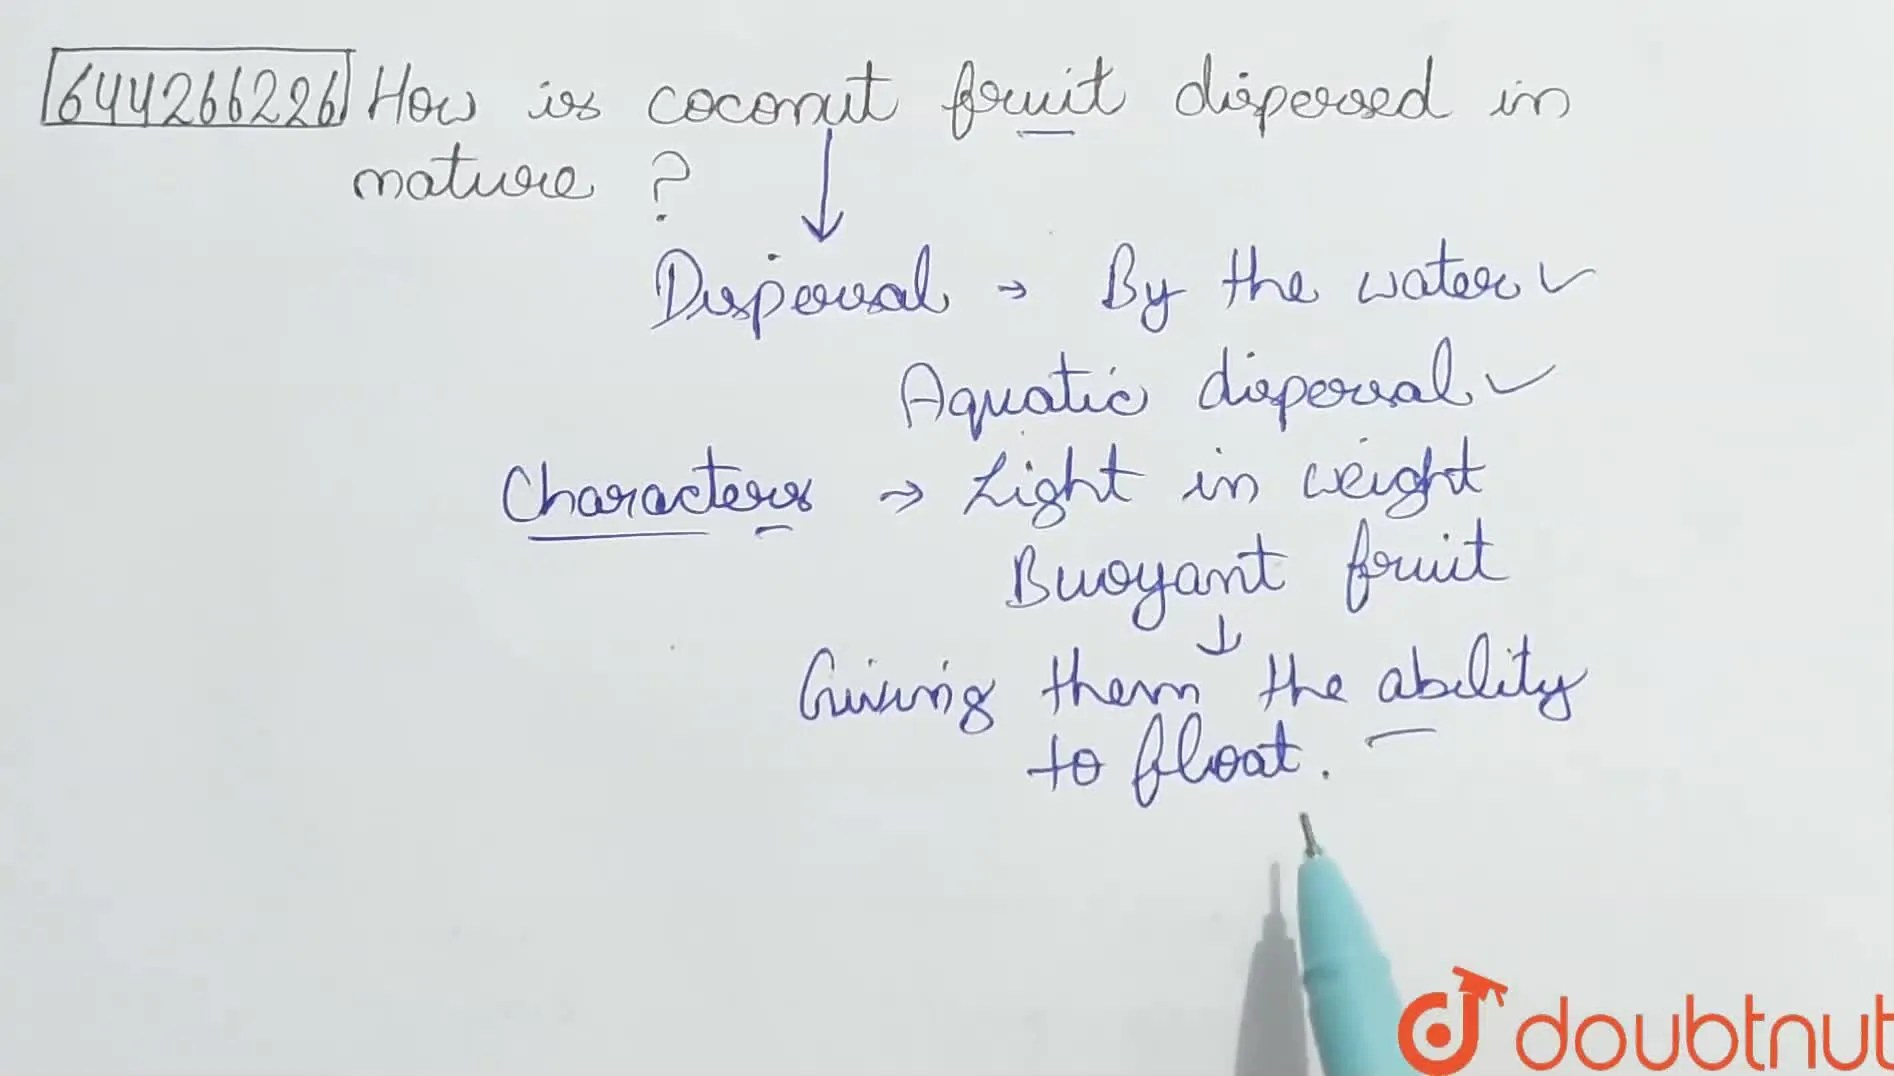 644266226 How is coconut fruit dispersed in
nature ?
Dispersal → By the water ✓
Aquatic dispersal ✓
Characters → Light in weight
Buoyant fruit
↓
Giving them the ability
to float.
doubtnut